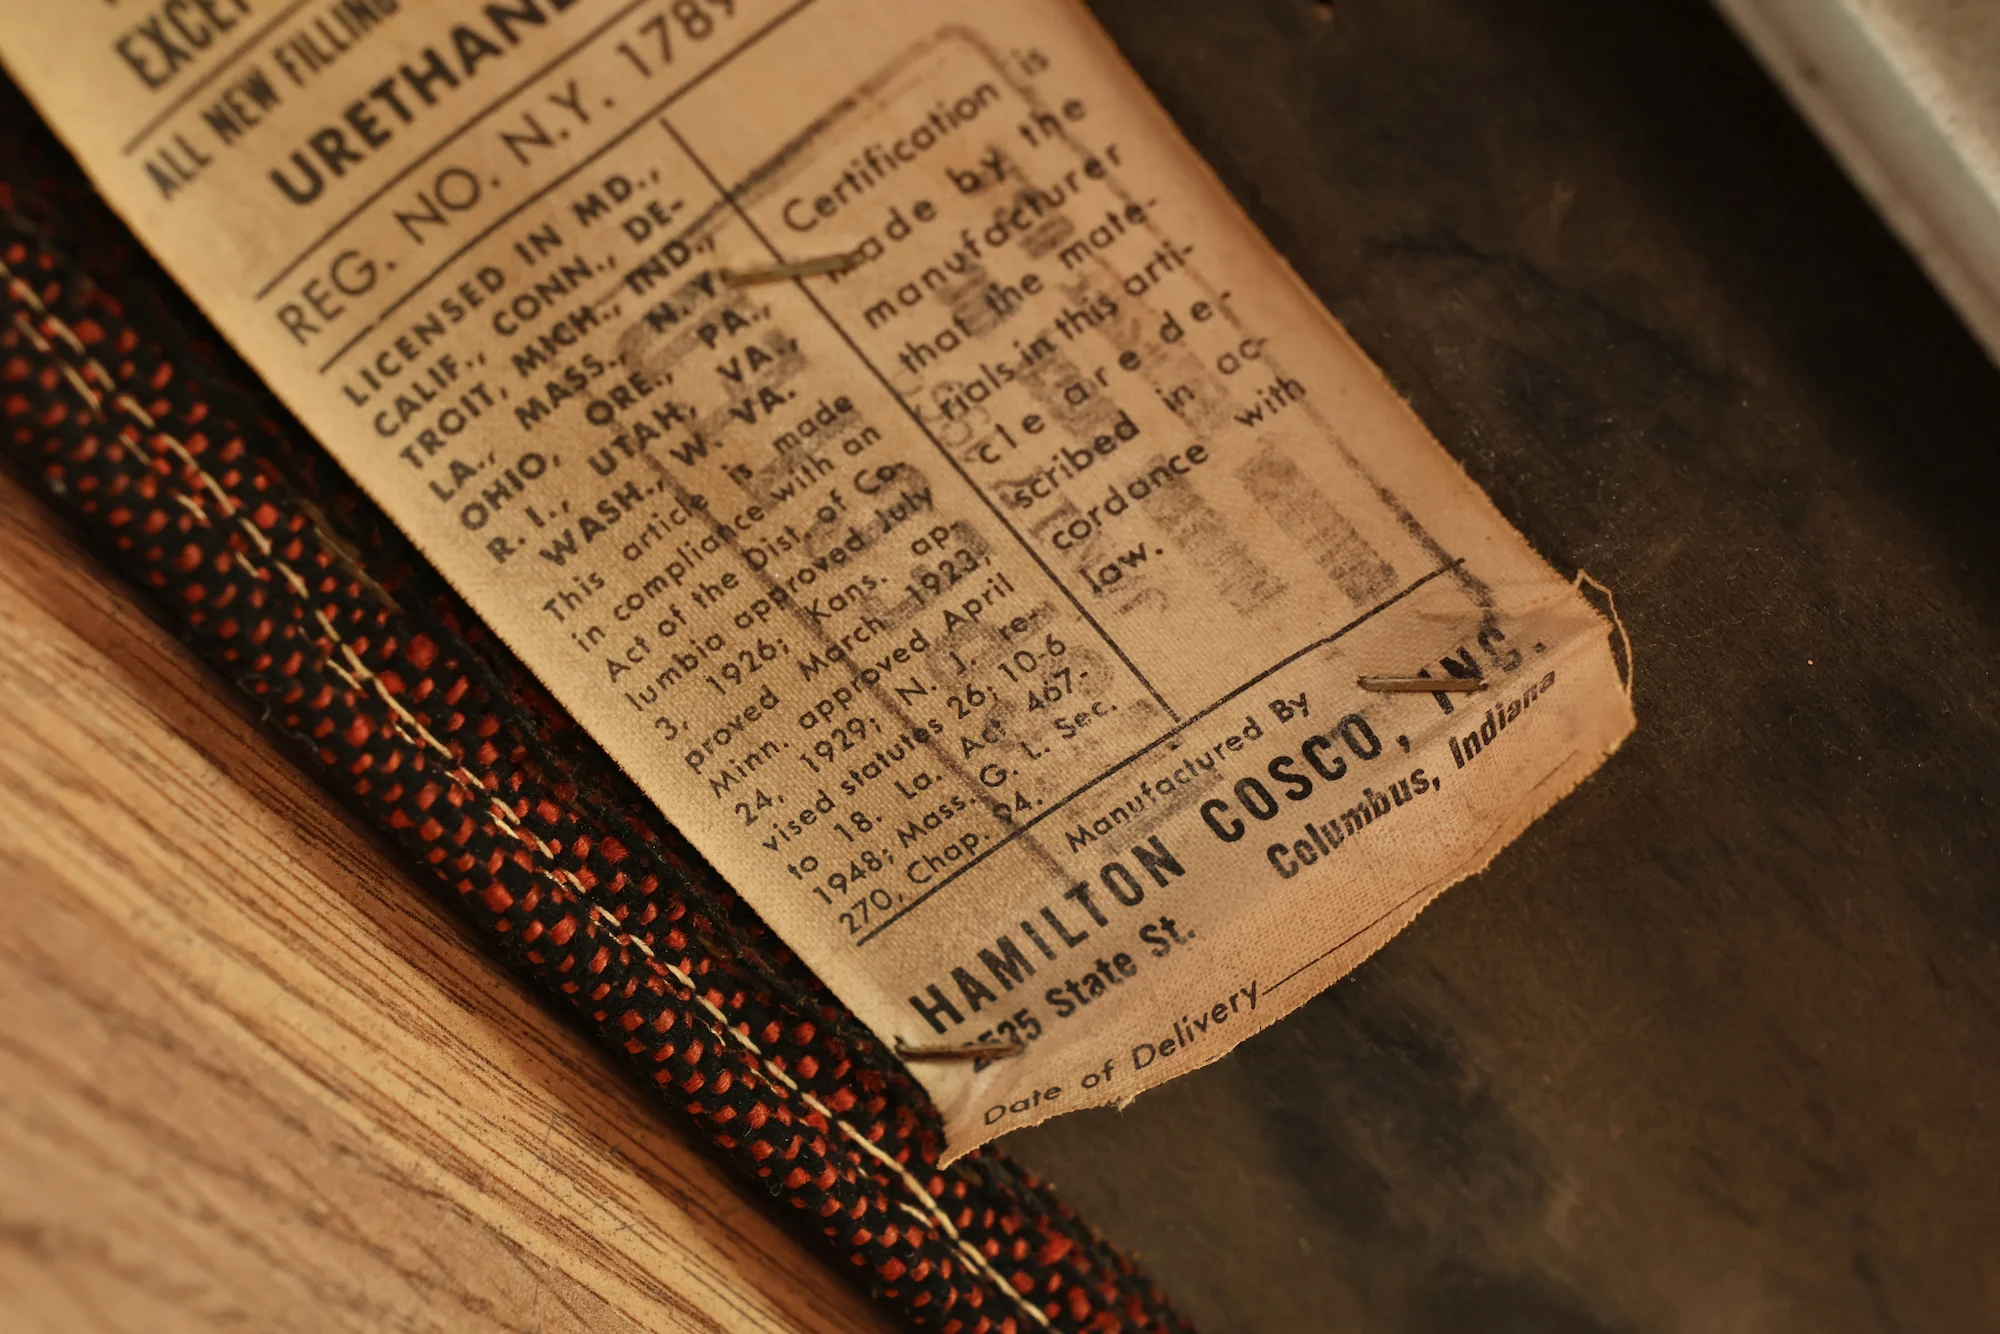 ALL NEW FILLING
REG. NO. N.Y.
LICENSED IN MD.,
CALIF., CONN., DE-
TROIT, MICH., IND.,
LA., MASS., N.Y.
OHIO, ORE., PA.,
R. I., UTAH, VA.,
WASH., W. VA.
This article is made
in compliance with an
Act of the Dist. of Co-
lumbia approved July
3, 1926; Kans. ap-
proved March 1923;
Minn. approved April
24, 1929; N. J. re-
vised statutes 26; 10-6
to 18. La. Act 467-
1948; Mass. G. L. Sec.
270, Chap. 94.
Certification is
made by the
manufacturer
that the mate-
rials in this arti-
cle are de-
scribed in ac-
cordance with
law.
Manufactured By
HAMILTON COSCO, INC.
State St. Columbus, Indiana
Date of Delivery